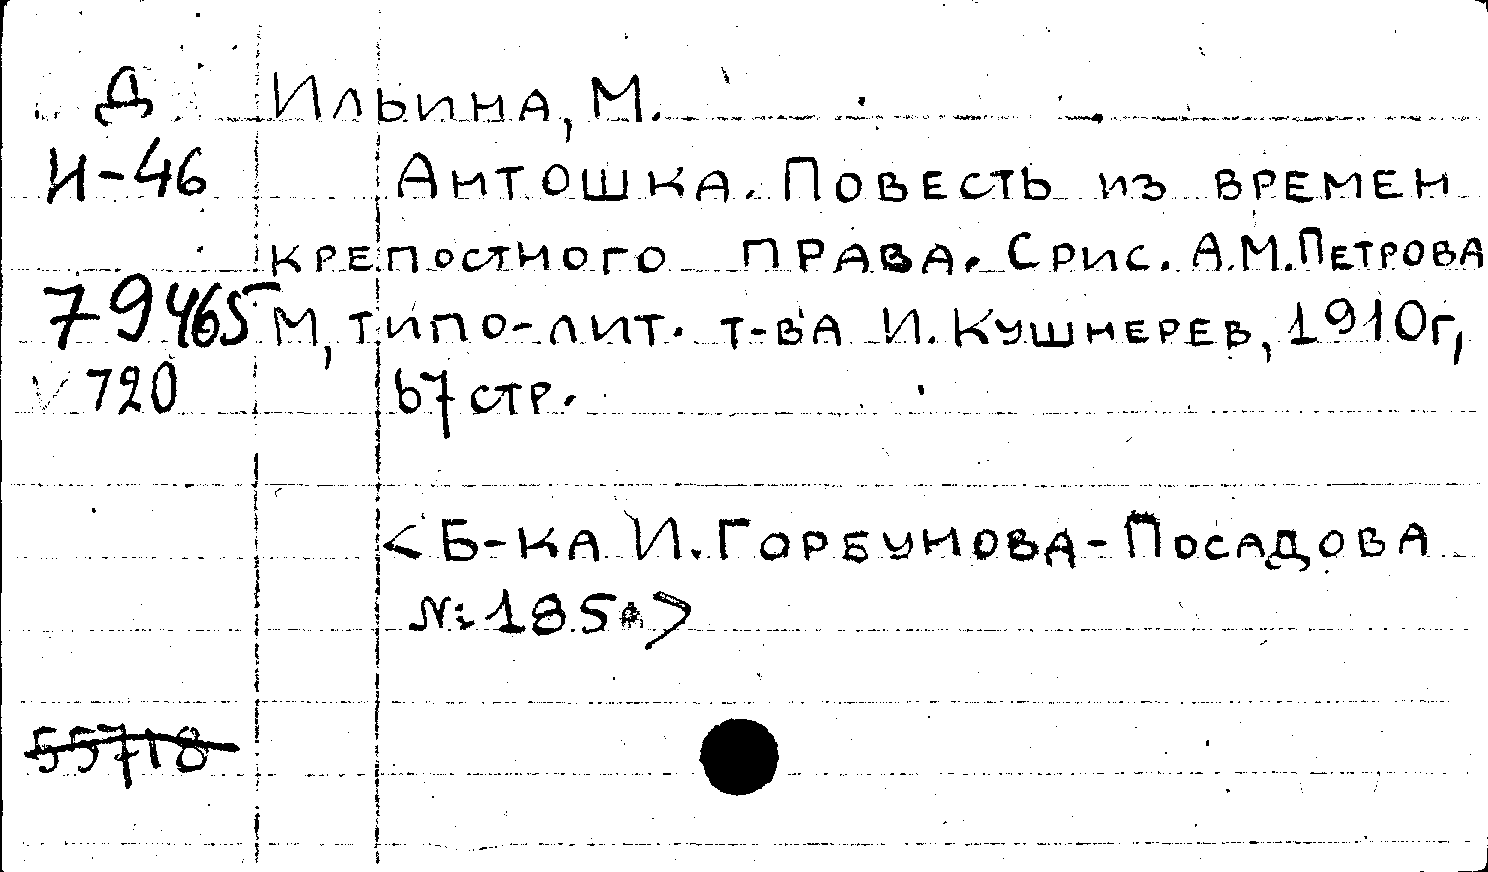 Д Ильина, М.
И-46 Антошка. Повесть из времен
крепостного права. С рис. А.М.Петрова
79465 М, типо-лит. т-ва И. Кушнерев, 1910г,
V 720 67 стр.
<Б-ка И. Горбунова-Посадова
№ 185>
55718